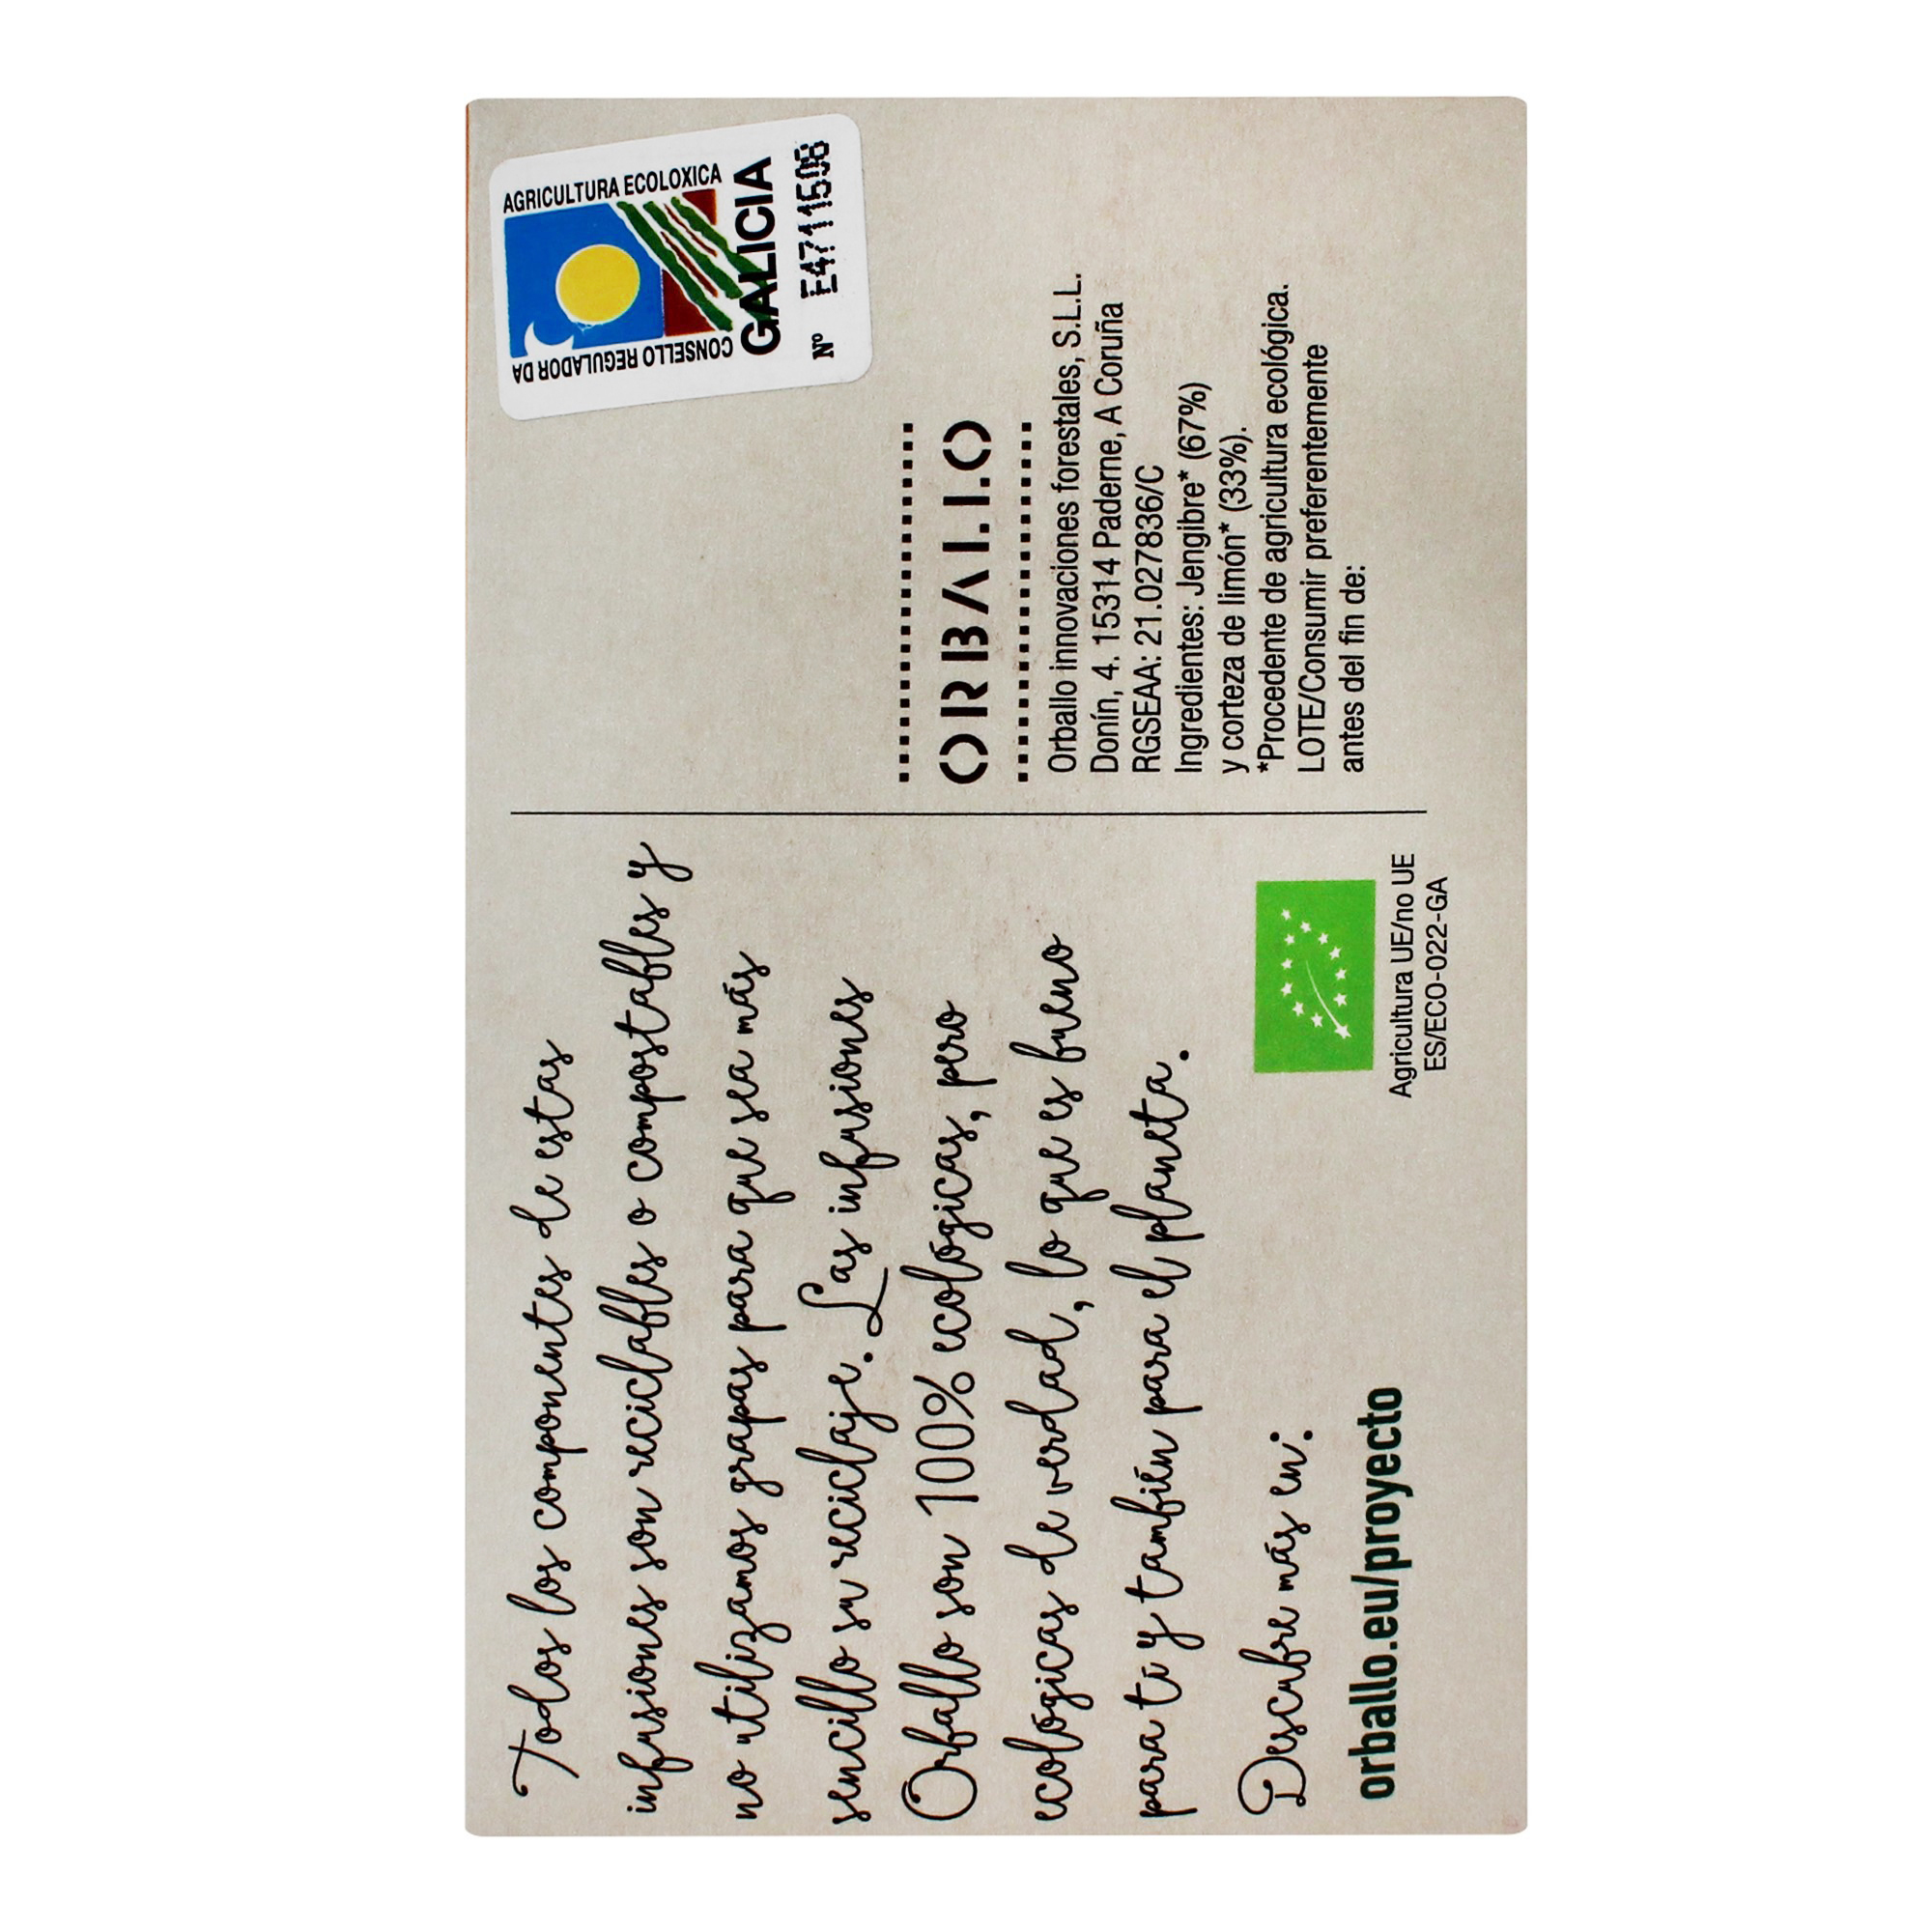 Todos los componentes de estas
infusiones son reciclables o compostables y
no utilizamos grapas para que sea más
sencillo su reciclaje. Las infusiones
Orballo son 100% ecológicas, pero
ecológicas de verdad, lo que es bueno
para tí y también para el planeta.
Descubre más en:
orballo.eu/proyecto
Agricultura UE/no UE
ES/ECO-022-GA
CONSELLO REGULADOR DA
AGRICULTURA ECOLOXICA
GALICIA
Nº E4711508
ORBALLO
Orballo innovaciones forestales, S.L.L.
Donín, 4. 15314 Paderne, A Coruña
RGSEAA: 21.027836/C
Ingredientes: Jengibre* (67%)
y corteza de limón* (33%).
*Procedente de agricultura ecológica.
LOTE/Consumir preferentemente
antes del fin de: